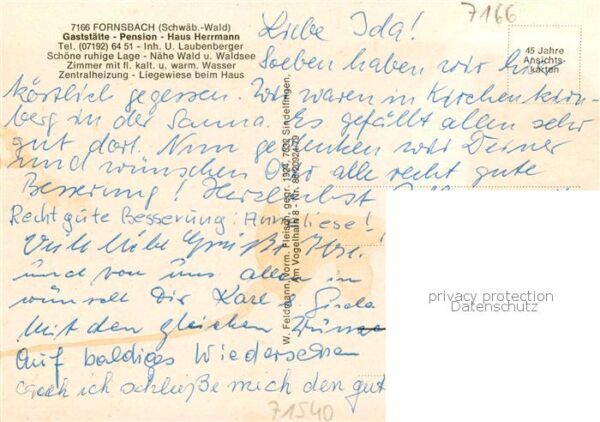 7166 FORNSBACH (Schwäb.-Wald)
Gaststätte - Pension - Haus Herrmann
Tel. (07192) 64 51 - Inh. U. Laubenberger
Schöne ruhige Lage - Nähe Wald u. Waldsee
Zimmer mit fl. kalt. u. warm. Wasser
Zentralheizung - Liegewiese beim Haus
7166
45 Jahre
Ansichts-
karten
Liebe Ida!
Soeben haben wir hier
köstlich gegessen. Wir waren in Kirchenkirn-
berg in der Sauna. Es gefällt allen sehr
gut dort. Nun gedenken wir Deiner
und wünschen Dir alle recht gute
Besserung! Herzlichst
Recht gute Besserung: Anneliese!
Viele liebe Grüße
und von uns allen
wünscht Dir
Mit den gleichen
Auf baldiges Wiedersehen
auch ich schließe mich den gut
W. Feldmann, vorm. Fleisch, gegr. 1924, 7032 Sindelfingen,
Am Vogelhain 8 - Nr.
privacy protection
Datenschutz
71540